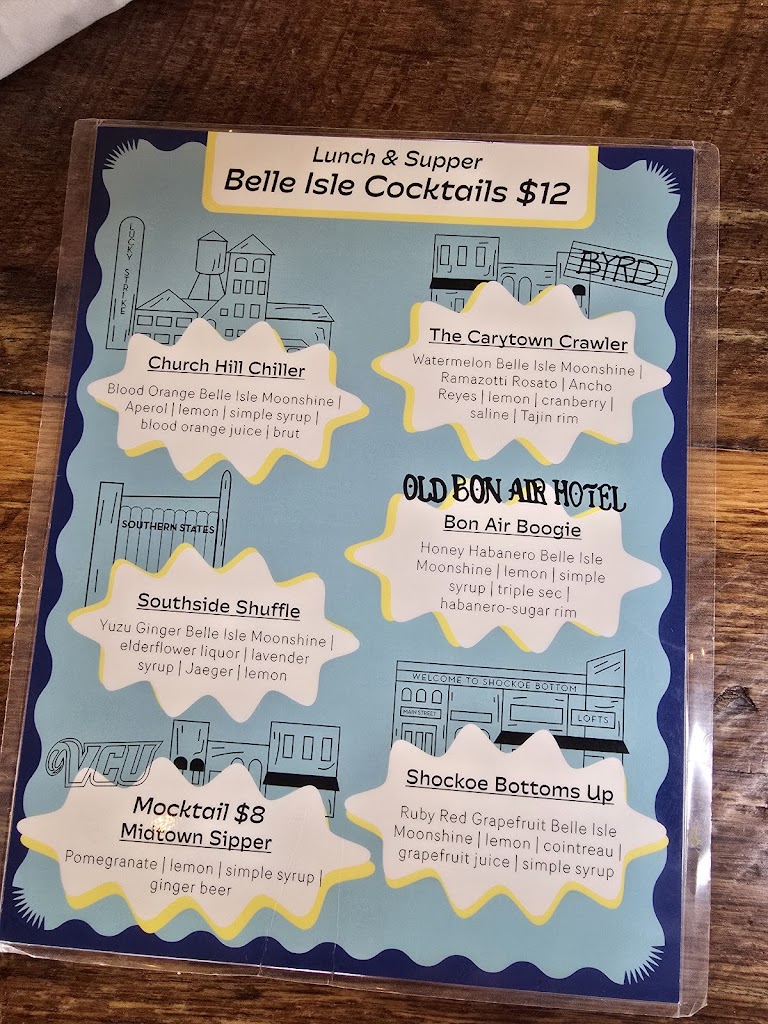 Lunch & Supper
Belle Isle Cocktails $12
LUCKY STRIKE
Church Hill Chiller
Blood Orange Belle Isle Moonshine |
Aperol | lemon | simple syrup |
blood orange juice | brut
BYRD
The Carytown Crawler
Watermelon Belle Isle Moonshine |
Ramazotti Rosato | Ancho
Reyes | lemon | cranberry |
saline | Tajin rim
SOUTHERN STATES
Southside Shuffle
Yuzu Ginger Belle Isle Moonshine |
elderflower liquor | lavender
syrup | Jaeger | lemon
OLD BON AIR HOTEL
Bon Air Boogie
Honey Habanero Belle Isle
Moonshine | lemon | simple
syrup | triple sec |
habanero-sugar rim
VCU
Mocktail $8
Midtown Sipper
Pomegranate | lemon | simple syrup |
ginger beer
WELCOME TO SHOCKOE BOTTOM
MAIN STREET
LOFTS
Shockoe Bottoms Up
Ruby Red Grapefruit Belle Isle
Moonshine | lemon | cointreau |
grapefruit juice | simple syrup